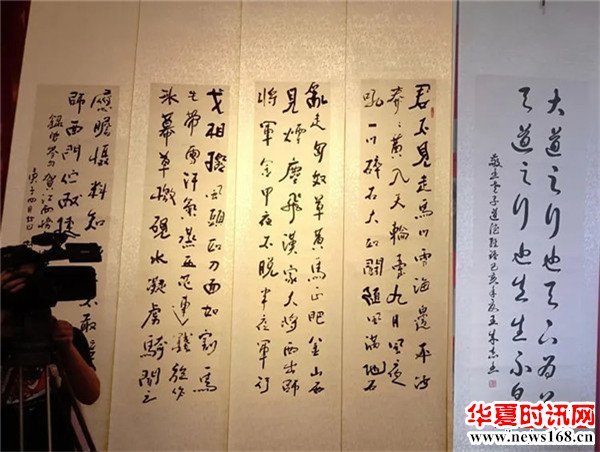 大道之行也天下为
天道之行也生生不息
君不見走馬川雪海邊平沙
莽莽黃入天輪臺九月風夜
吼一川碎石大如鬥隨風滿地石
亂走匈奴草黃馬正肥金山西
見煙塵飛漢家大將西出師
將軍金甲夜不脫半夜軍行
戈相撥風頭如刀面如割馬
毛帶雪汗氣蒸五花連錢旋作
冰幕草檄硯水凝虜騎聞之
應膽慑料知 不敢
師西門佇献捷
庚子四月廿日
华夏时讯网
www.news168.com.cn